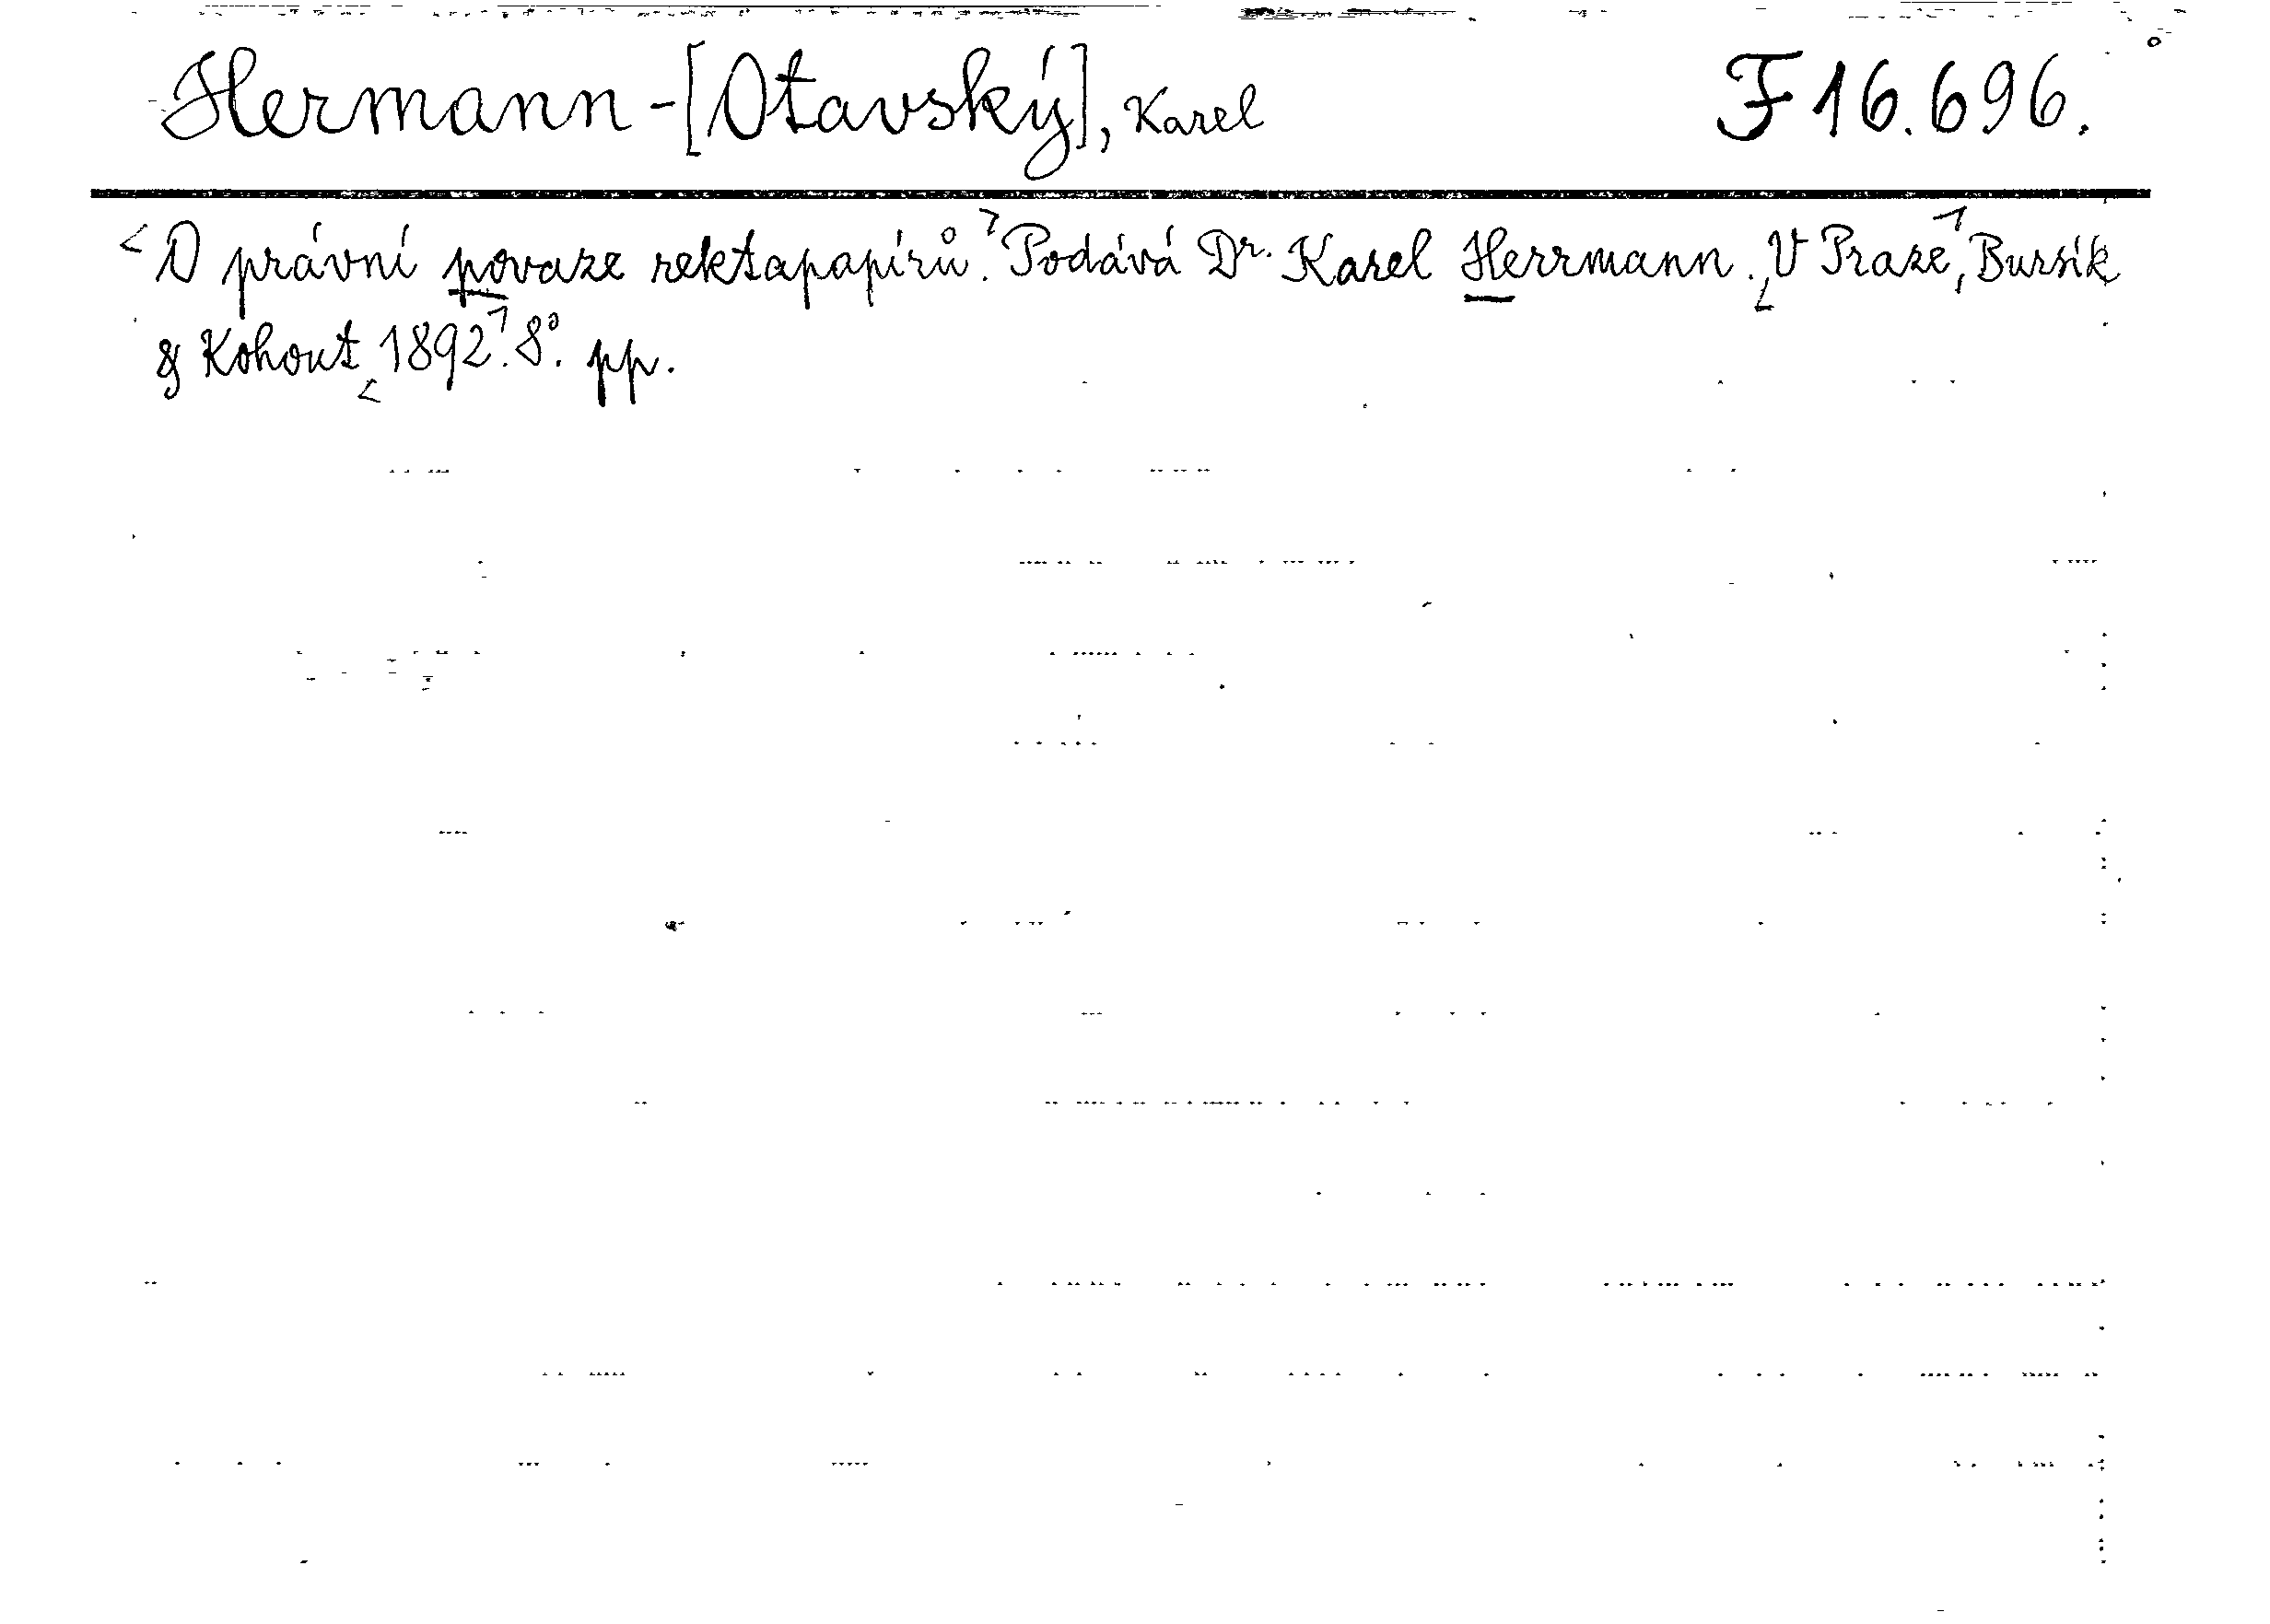 Hermann-[Otavský], Karel F 16.696.
<O právní povaze rektapapírů.> Podává Dr. Karel Herrmann. <V Praze>, Bursík
& Kohout <1892>. 8°. pp.